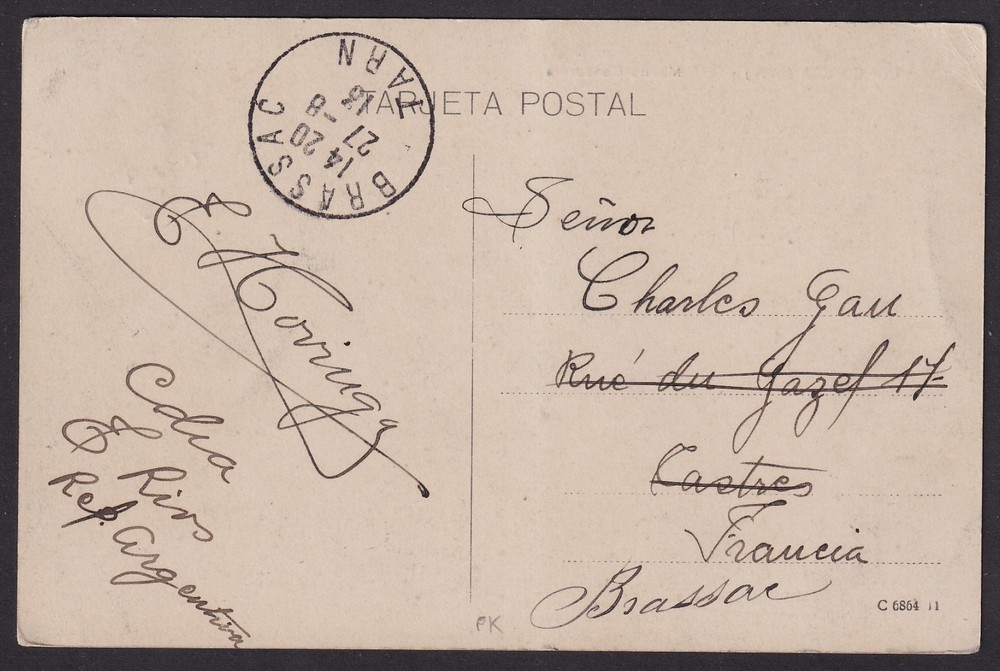 TARJETA POSTAL
BRASSAC
14 20
27 - 8
13
TARN
Señor
Charles Gau
Rué du Gazel 17
Castres
Francia
Brassac
E Hovinga
Cdia
E Rios
Rep. Argentina
C 6864 11
PK